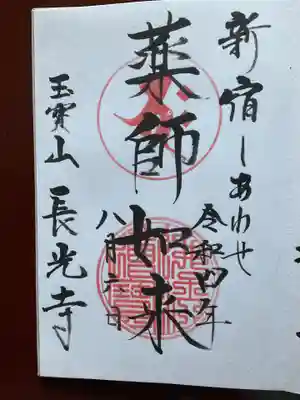 新宿しあわせ
令和四年
薬師如来
八月六日
玉寳山長光寺